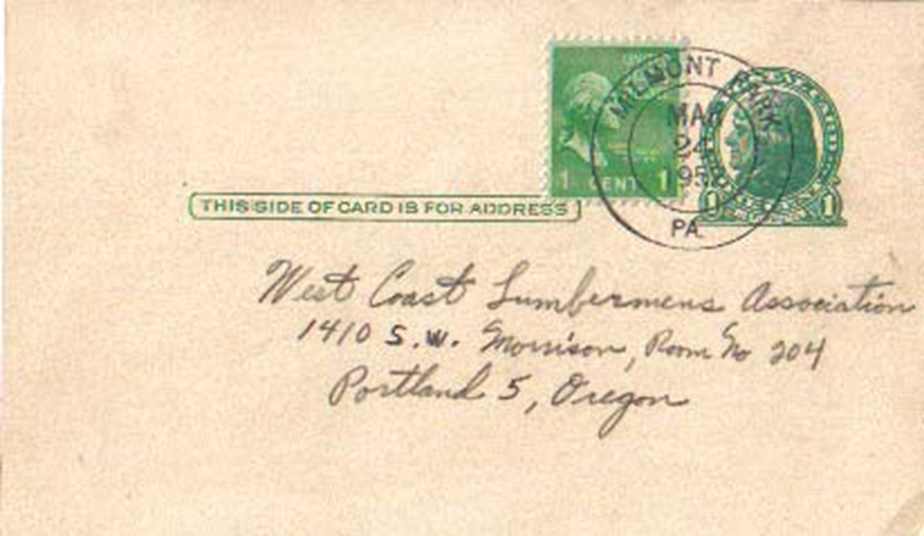 MILMONT PARK
MAR
24
195
PA.
1 CENT 1
1 1
THIS SIDE OF CARD IS FOR ADDRESS
West Coast Lumbermens Association
1410 S.W. Morrison, Room No 204
Portland 5, Oregon